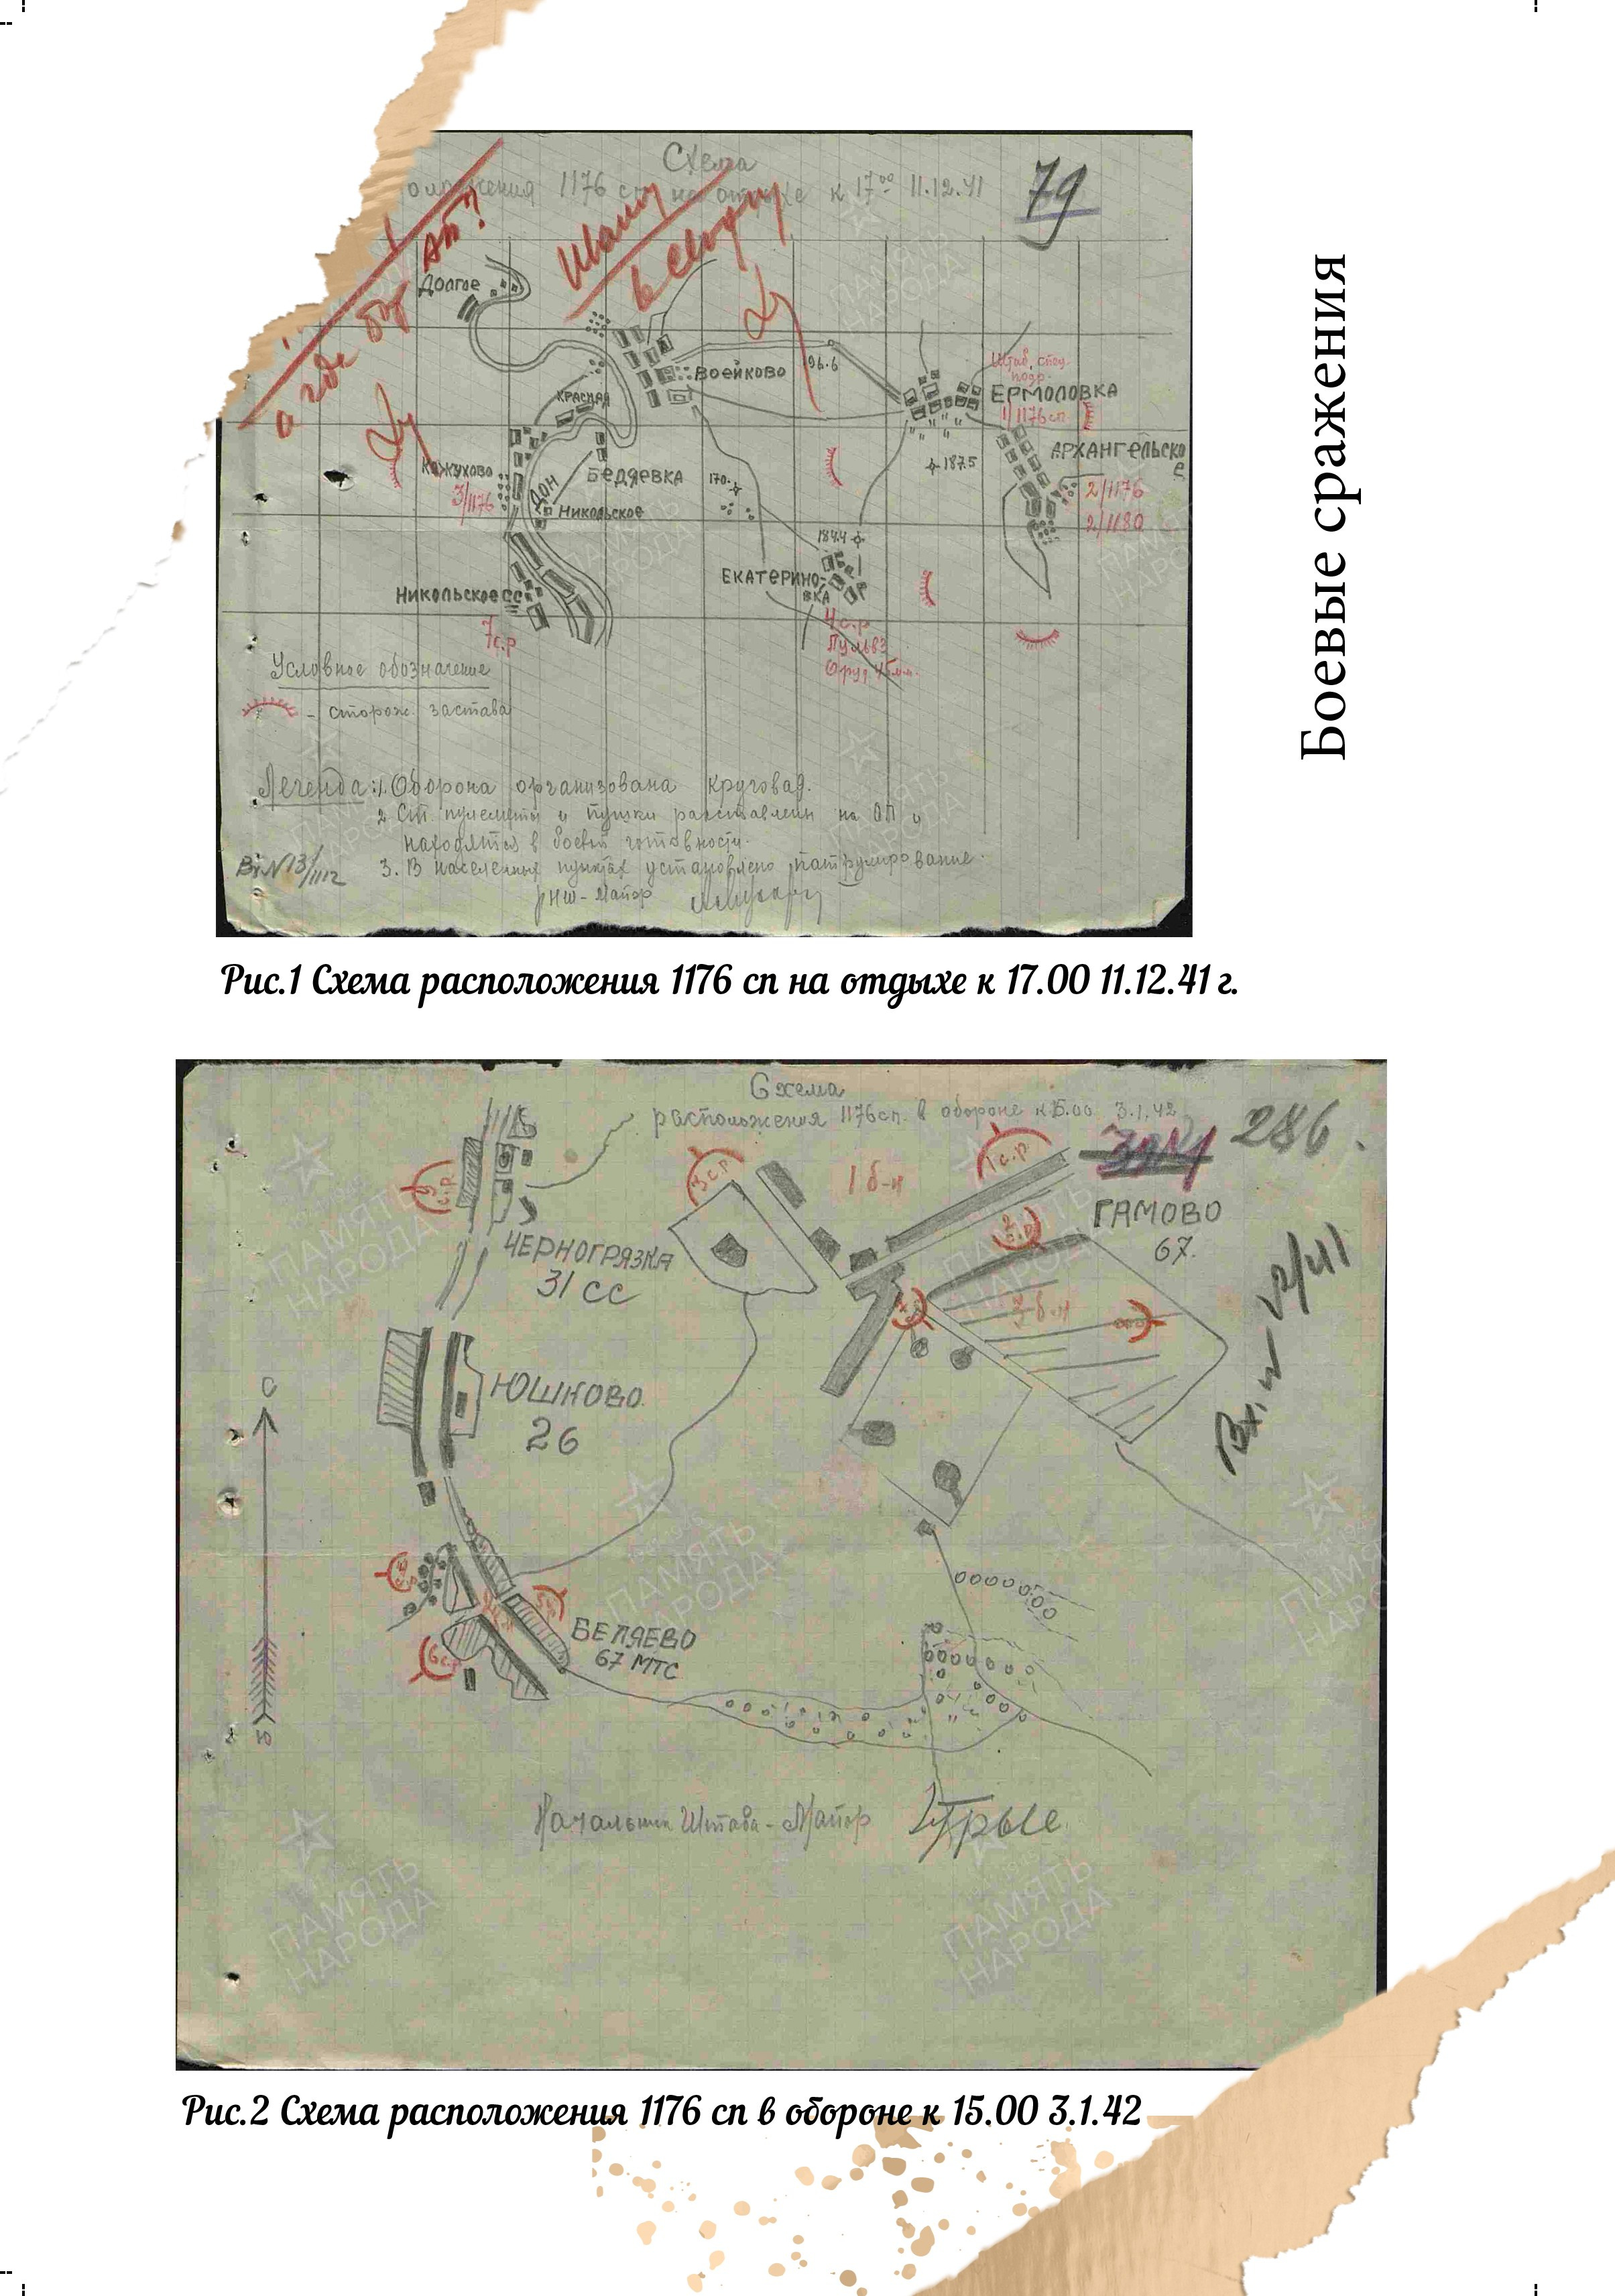 Схема
1176 сп на отдыхе к 17⁰⁰ 11.12.41
79
а где
Долгое
Воейково
96.6
Штаб, спец.
подр.
ЕРМОЛОВКА
1/1176 сп
КРАСНАЯ
АРХАНГЕЛЬСКО
Е
187.5
Кожухово
3/1176
БЕДЯЕВКА
170.
2/1176
2/1180
ДОН
Никольское
184.4
ЕКАТЕРИНО-
ВКА
НИКОЛЬСКОЕ СС
7 с.р
4 с.р
Условное обозначение
- сторож. застава
Легенда: 1. Оборона организована круговая.
2. Ст. пулеметы и пушки расставлены на ОП и
находятся в боевой готовности.
3. В населенных пунктах установлено патрулирование.
НШ - Майор
Рис.1 Схема расположения 1176 сп на отдыхе к 17.00 11.12.41 г.
Боевые сражения
Схема
расположения 1176 сп. в обороне к 15.00 3.1.42
286.
3 с.р.
1 б-н
1 с.р.
ГАМОВО
67.
ЧЕРНОГРЯЗКА
31 СС
3 б-н
С
ЮШКОВО
26
БЕЛЯЕВО
67 МТС
6 с.р
Ю
Начальник Штаба - Майор
ПАМЯТЬ
НАРОДА
Рис.2 Схема расположения 1176 сп в обороне к 15.00 3.1.42